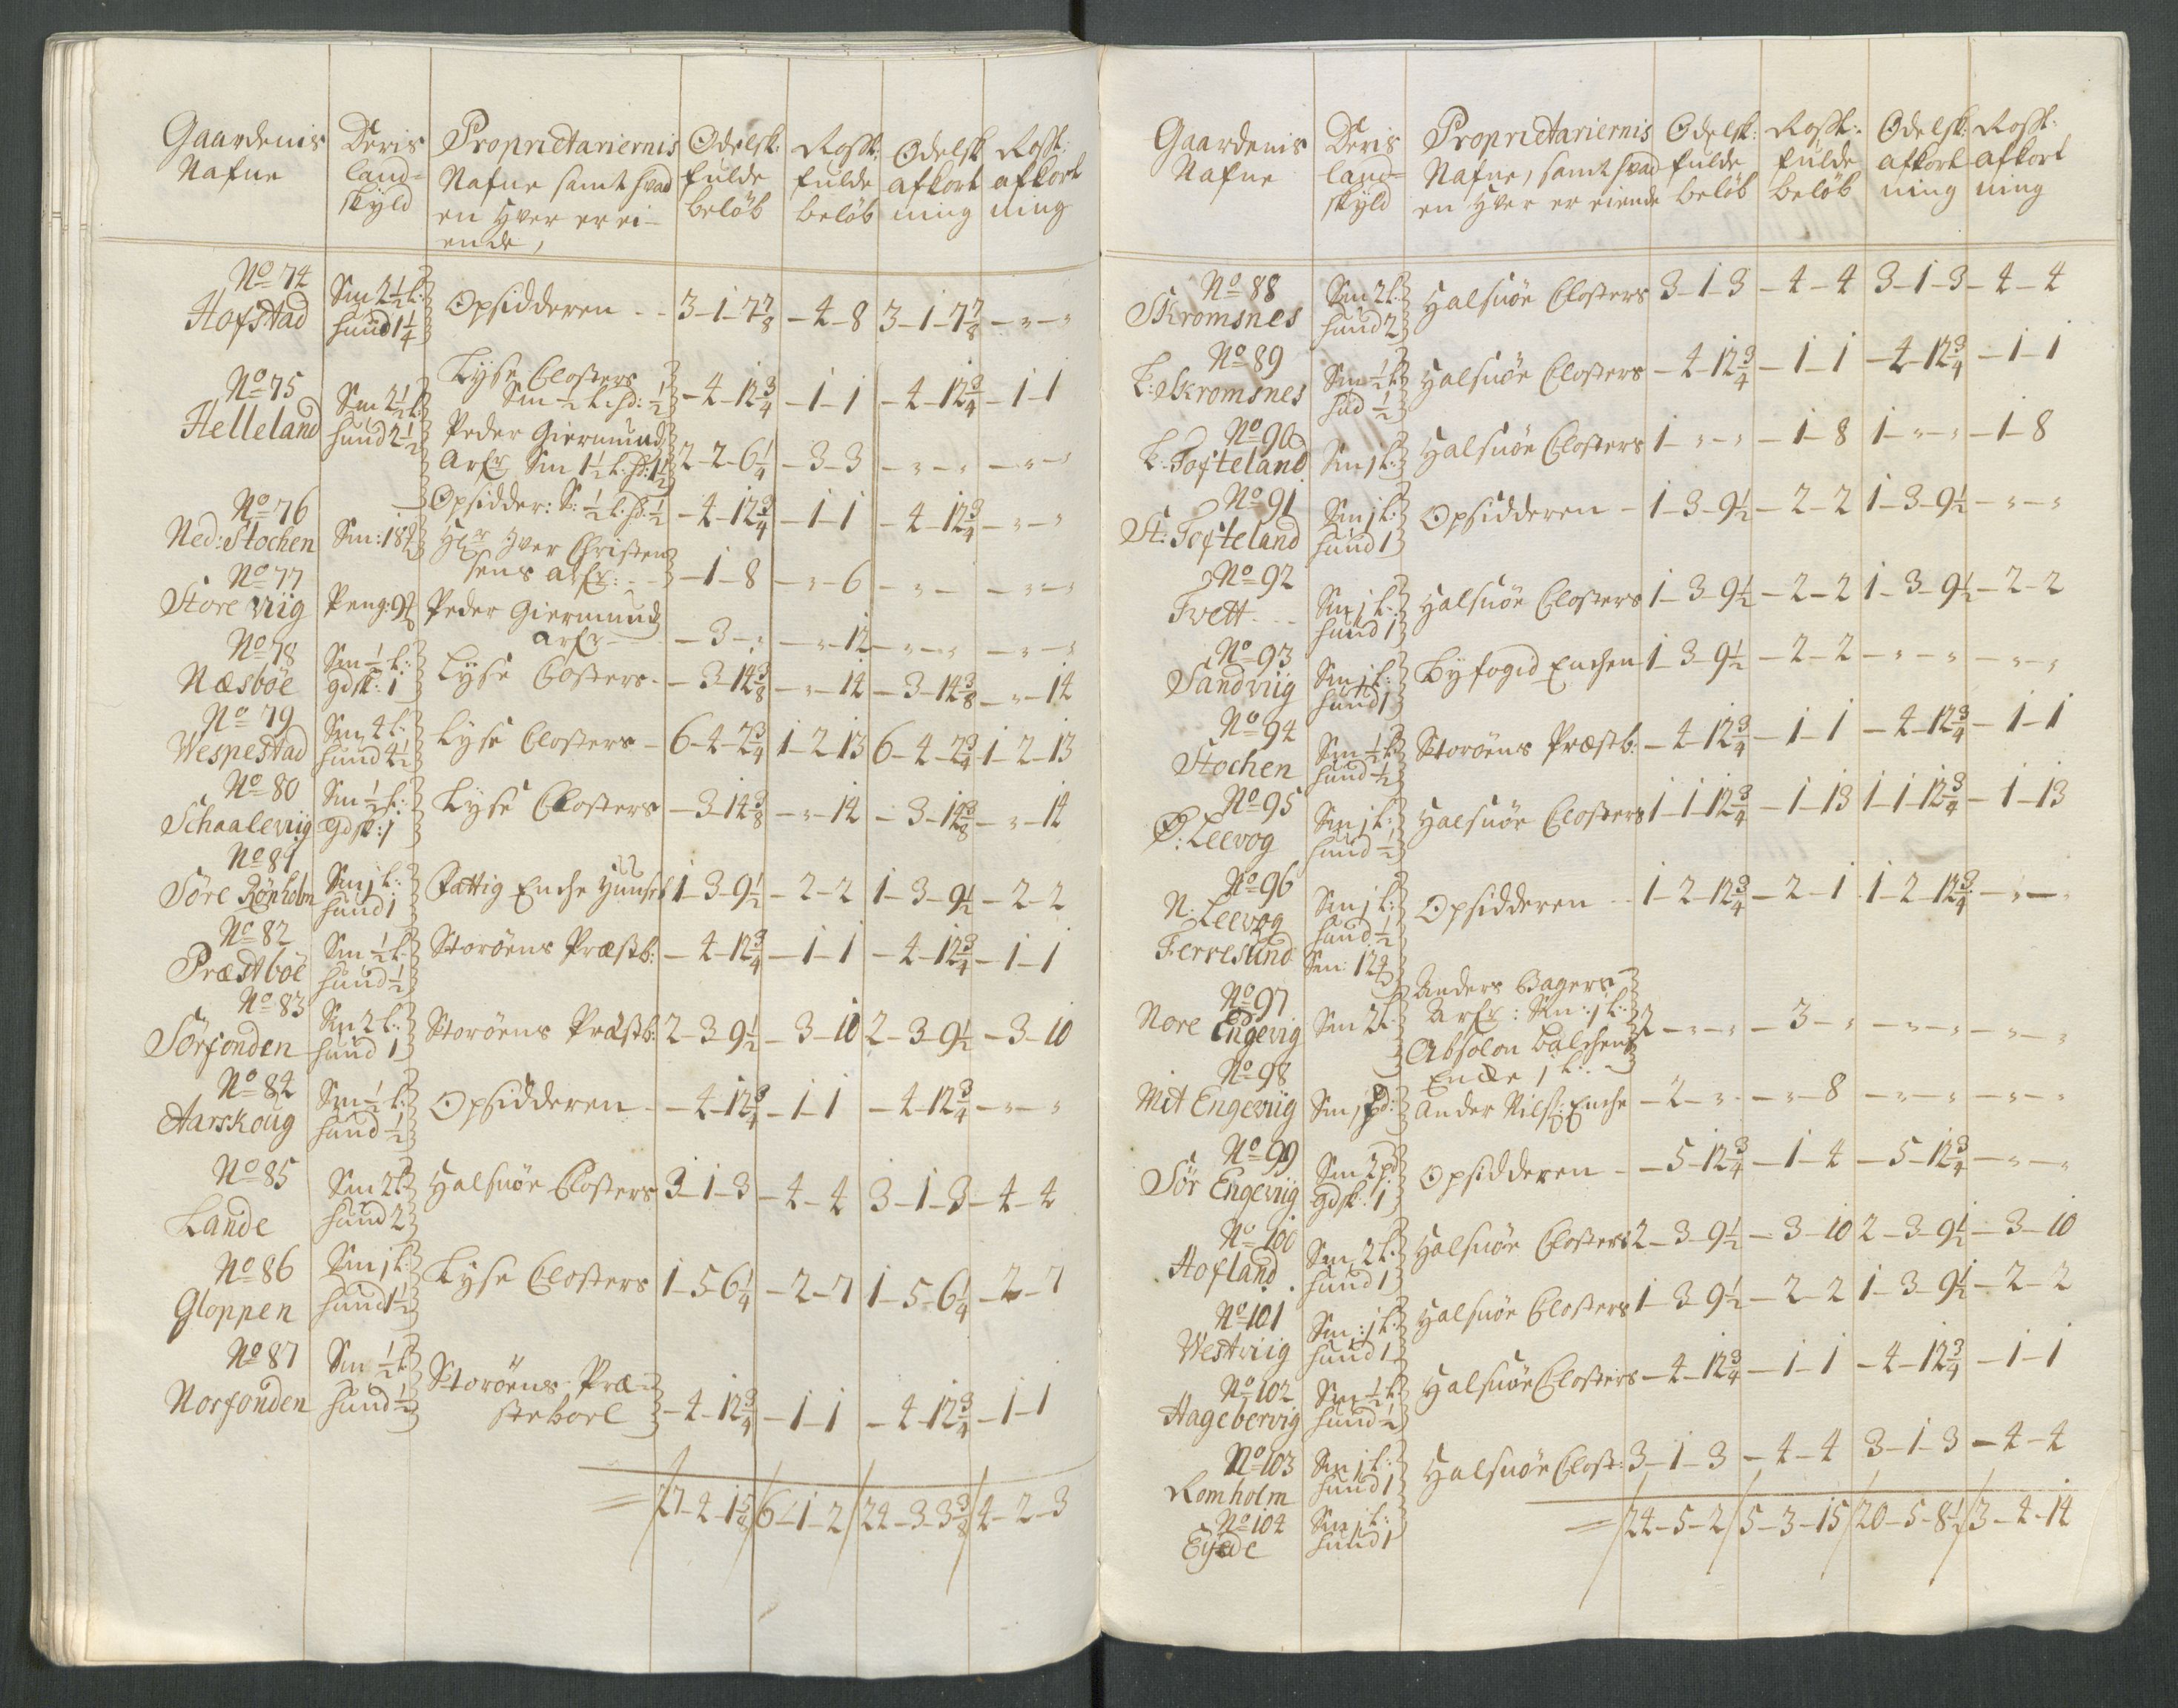 Gaardenis Nafne | Deris land= skyld | Proprietariernis Nafne samt hvad en hver er ei- ende, | Odelsk: fulde beløb | Rossk: fulde beløb | Odelsk afkort ning | Rossk: afkort ning
No 74 Hofstad | Sm 2½ l: hund 1¼ | Opsidderen - - | 3-1-7⅞ | -4-8 | 3-1-7⅞ | -"-"
No 75 Helleland | Sm 2½ l: hund 2½ | Lyse Closters Sm ½ l: hd: ½ | -4-12¾ | -1-1 | -4-12¾ | -1-1
Peder Giermund Arfr Sm 1½ l: hd: 1½ | 2-2-6¼ | -3-3 | -"-" | -"-"
Opsidder: S: ½ l: hd: ½ | -4-12¾ | -1-1 | -4-12¾ | -"-"
No 76 Ned: Stochen | Sm: 18 | Hr Iver Christen sens arfr: - - | -1-8 | -"-6 | -"- | -"-"
No 77 Store viig | Peng: 9 | Peder Giermund arfr | -3-" | -"-12 | -"-" | -"-"
No 78 Næsböe | Sm ½ l: gdsk: 1 | Lyse Closters - | -3-14⅜ | -"-14 | -3-14⅜ | -"-14
No 79 Wespestad | Sm 4 l: hund 4½ | Lyse Closters - | 6-4-2¾ | 1-2-13 | 6-4-2¾ | 1-2-13
No 80 Schaaleviig | Sm ½ l: gdsk: 1 | Lyse Closters | -3-14⅜ | -"-14 | -3-14⅜ | -"-14
No 81 Söre Rönholm | Sm j l: hund 1 | Fattig Enche Huuset | 1-3-9½ | -2-2 | 1-3-9½ | -2-2
No 82 Præstböe | Sm ½ l: hund ½ | Storöens Præstb: | -4-12¾ | -1-1 | -4-12¾ | -1-1
No 83 Sörfonden | Sm 2 l: hund 1 | Storöens Præstb: | 2-3-9½ | -3-10 | 2-3-9½ | -3-10
No 84 Aarskoug | Sm ½ l: hund ½ | Opsidderen - | -4-12¾ | -1-1 | -4-12¾ | -"-"
No 85 Lande | Sm 2 l: hund 2 | Halsnöe Closters | 3-1-3 | -4-4 | 3-1-3 | -4-4
No 86 Gloppen | Sm j l: hund 1½ | Lyse Closters | 1-5-6¼ | -2-7 | 1-5-6¼ | -2-7
No 87 Norfonden | Sm ½ l: hund ½ | Storöens Præ- steboel | -4-12¾ | -1-1 | -4-12¾ | -1-1
= /27-4-1⅝/ 6-1-2/ 24-3-3⅜/ 4-2-3
Gaardenis Nafne | Deris land= skyld | Proprietariernis Nafne, samt hvad en hver er eiende | Odelsk: fulde beløb | Rossk: fulde beløb | Odelsk: afkort ning | Rossk: afkort ning
No 88 Skromsnes | Sm 2 l: hund 2 | Halsnöe Closters | 3-1-3 | -4-4 | 3-1-3 | -4-4
No 89 L: Skromsnes | Sm ½ l: hud ½ | Halsnöe Closters | -4-12¾ | -1-1 | -4-12¾ | -1-1
No 90 L: Tofteland | Sm j l: | Halsnöe Closters | 1-"-" | -1-8 | 1-"-" | -1-8
No 91 St: Tofteland | Sm j l: hund 1 | Opsidderen - | 1-3-9½ | -2-2 | 1-3-9½ | -"-"
No 92 Tvett - - | Sm j l: hund 1 | Halsnöe Closters | 1-3-9½ | -2-2 | 1-3-9½ | -2-2
No 93 Sandviig | Sm j l: hund 1 | Byfogid Enchen | 1-3-9½ | -2-2 | -"-" | -"-"
No 94 Stochen | Sm ½ l: hund ½ | Storöens Præstb: | -4-12¾ | -1-1 | -4-12¾ | -1-1
No 95 Ö: Leevog | Sm j l: hund ½ | Halsnöe Closters | 1-1-12¾ | -1-13 | 1-1-12¾ | -1-13
No 96 N: Leevog Ferresund | Sm j l: hund ½ Sm: 12 | Opsidderen - - | 1-2-12¾ | -2-1 | 1-2-12¾ | -"-"
No 97 Nore Engevig | Sm 2 l: | Anders Bagers Arfr: Sm: j l: Absolon Balchens Encke j l: - | 2-"-" | -3-" | -"-" | -"-"
No 98 Mit Engeviig | Sm 1 pd: | Ander Nils: Enche | -2-" | -"-8 | -"-" | -"-"
No 99 Sör Engeviig | Sm 2 pd gdsk: 1 | Opsidderen - | -5-12¾ | -1-4 | -5-12¾ | -"-"
No 100 Hofland | Sm 2 l: hund 1 | Halsnöe Closters | 2-3-9½ | -3-10 | 2-3-9½ | -3-10
No 101 Westviig | Sm: j l: hund 1 | Halsnöe Closters | 1-3-9½ | -2-2 | 1-3-9½ | -2-2
No 102 Hagebervig | Sm ½ l: hund ½ | Halsnöe Closters | -4-12¾ | -1-1 | -4-12¾ | -1-1
No 103 Romholm | Sm j l: hund 1 | Halsnöe Clost: | 3-1-3 | -4-4 | 3-1-3 | -4-4
No 104 Eyede | Sm j l: hund 1
= /24-5-2/ 5-3-15/ 20-5-8½/ 3-4-14